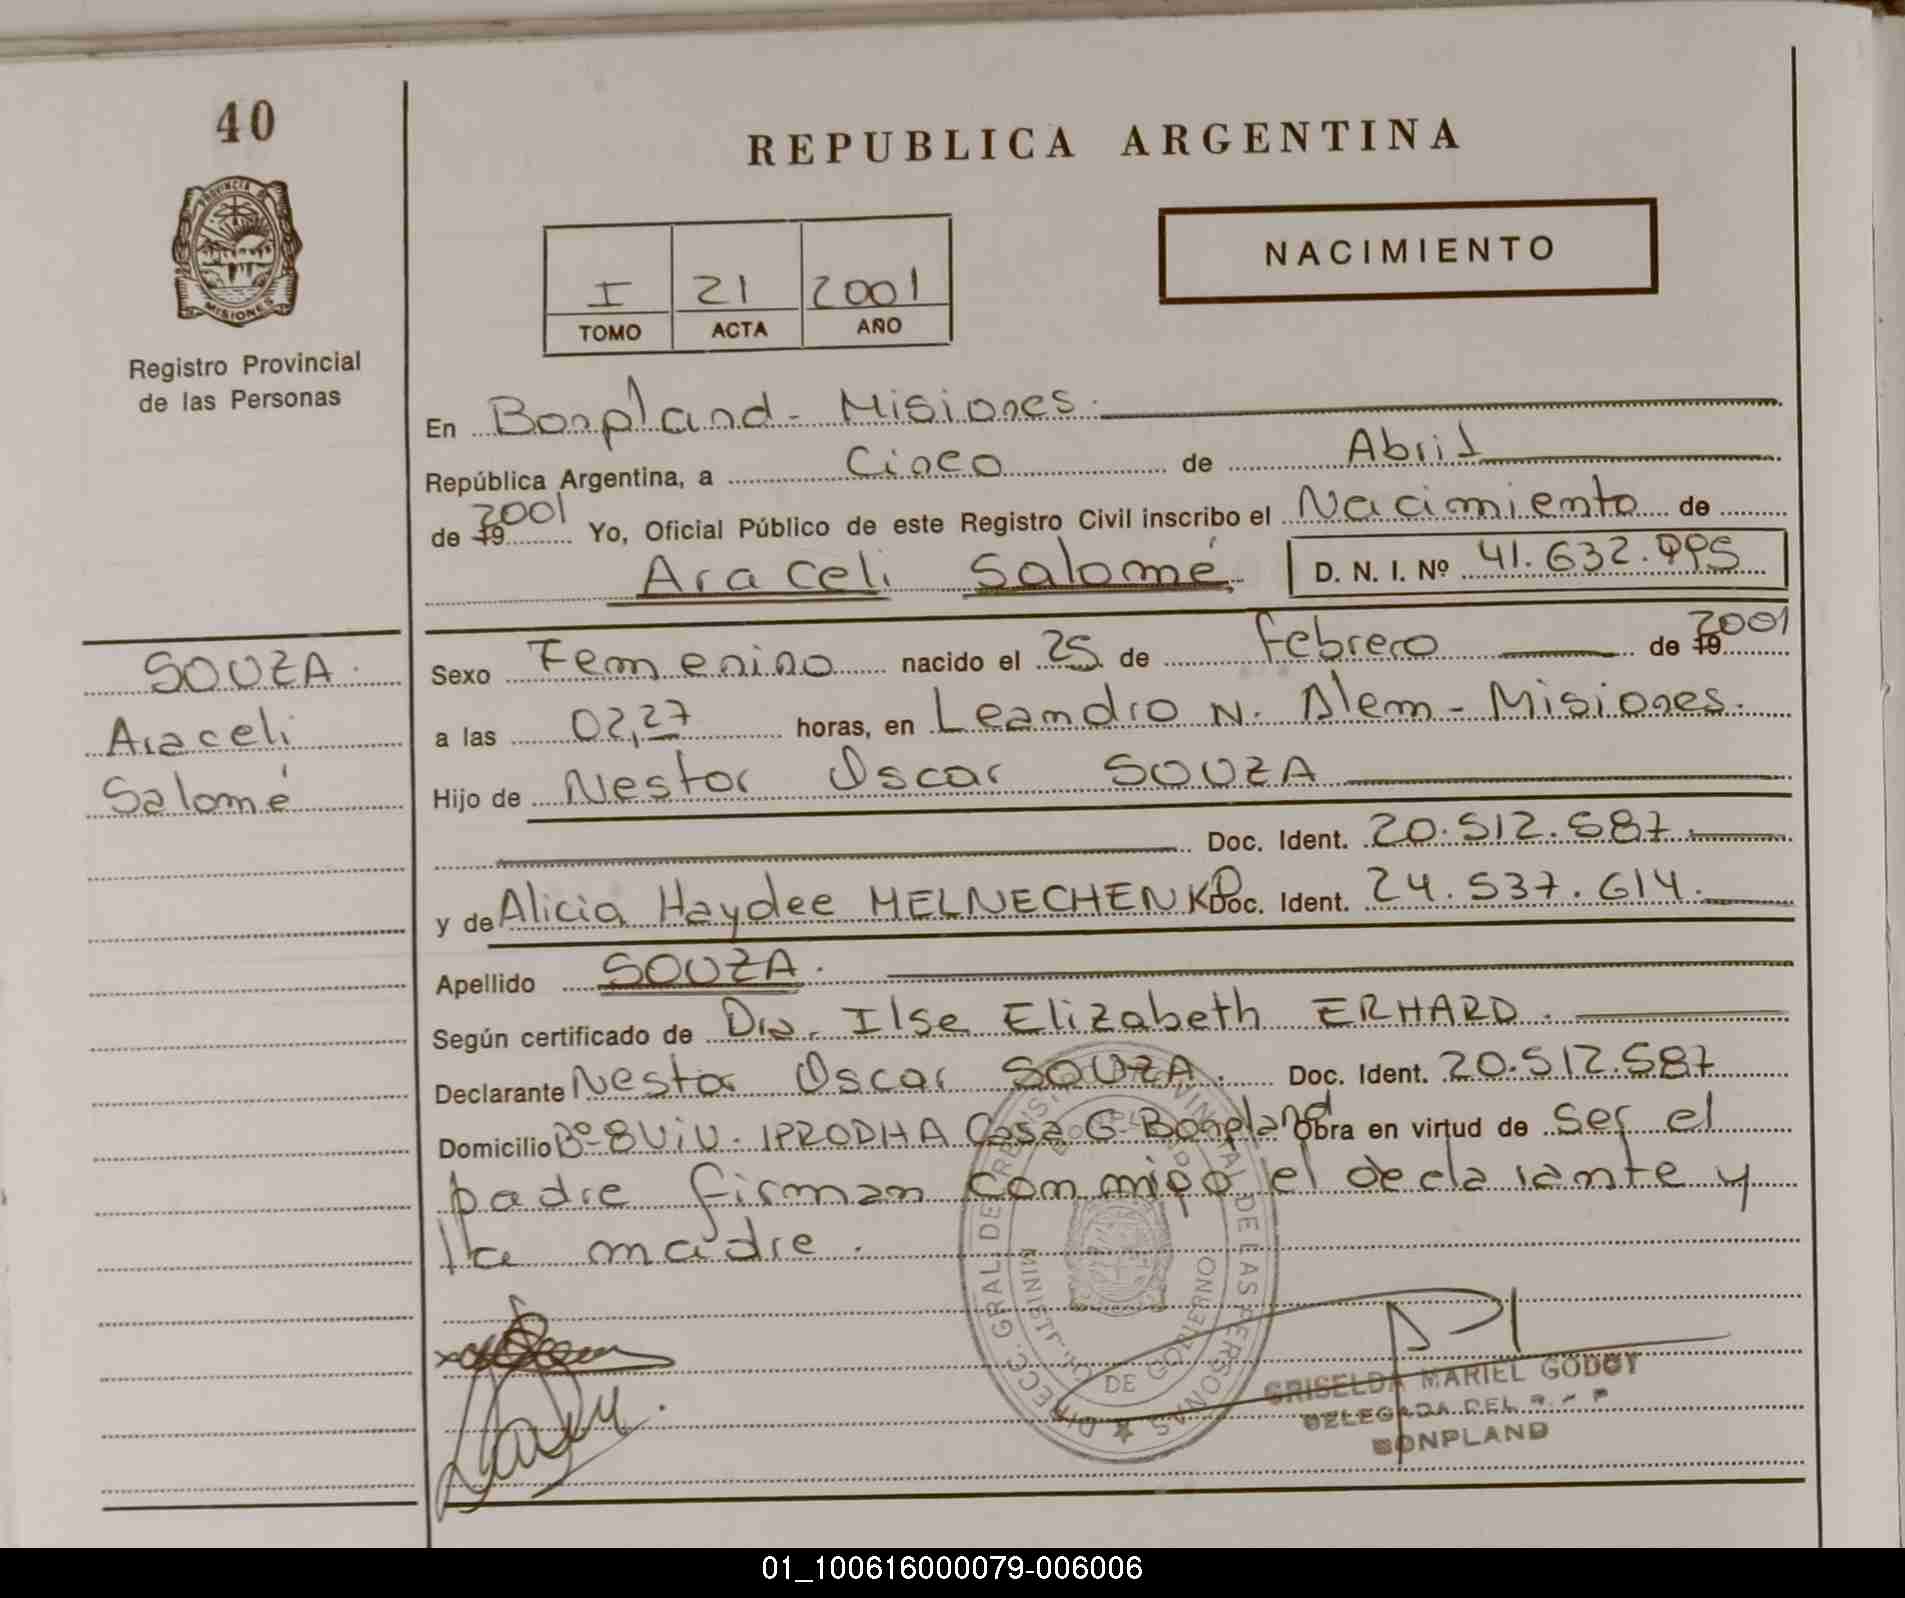 40
REPUBLICA ARGENTINA
PROVINCIA DE
MISIONES
Registro Provincial
de las Personas
I 21 2001
TOMO ACTA AÑO
NACIMIENTO
En Bonpland - Misiones.
República Argentina, a Cinco de Abril
de 19 2001 Yo, Oficial Público de este Registro Civil inscribo el Nacimiento de
Araceli Salomé. D. N. I. Nº 41.632.995
SOUZA.
Araceli
Salomé
Sexo Femenino nacido el 25 de febrero de 19 2001
a las 02,27 horas, en Leandro N. Alem - Misiones.
Hijo de Nestor Oscar SOUZA
Doc. Ident. 20.512.587.
y de Alicia Haydee MELNECHENKO Doc. Ident. 24.537.614.
Apellido SOUZA.
Según certificado de Dra. Ilse Elizabeth ERHARD.
Declarante Nestor Oscar SOUZA. Doc. Ident. 20.512.587
Domicilio Bº 8 Viv. IPRODHA Casa 6 Bonpland Obra en virtud de ser el
padre firman conmigo el declarante y
la madre.
DIRECC. GRAL. DE REGISTRO PROVINCIAL DE LAS PERSONAS
BONPLAND
MINISTERIO DE GOBIERNO
GRISELDA MARIEL GODOY
DELEGADA DEL R. P
BONPLAND
01_100616000079-006006